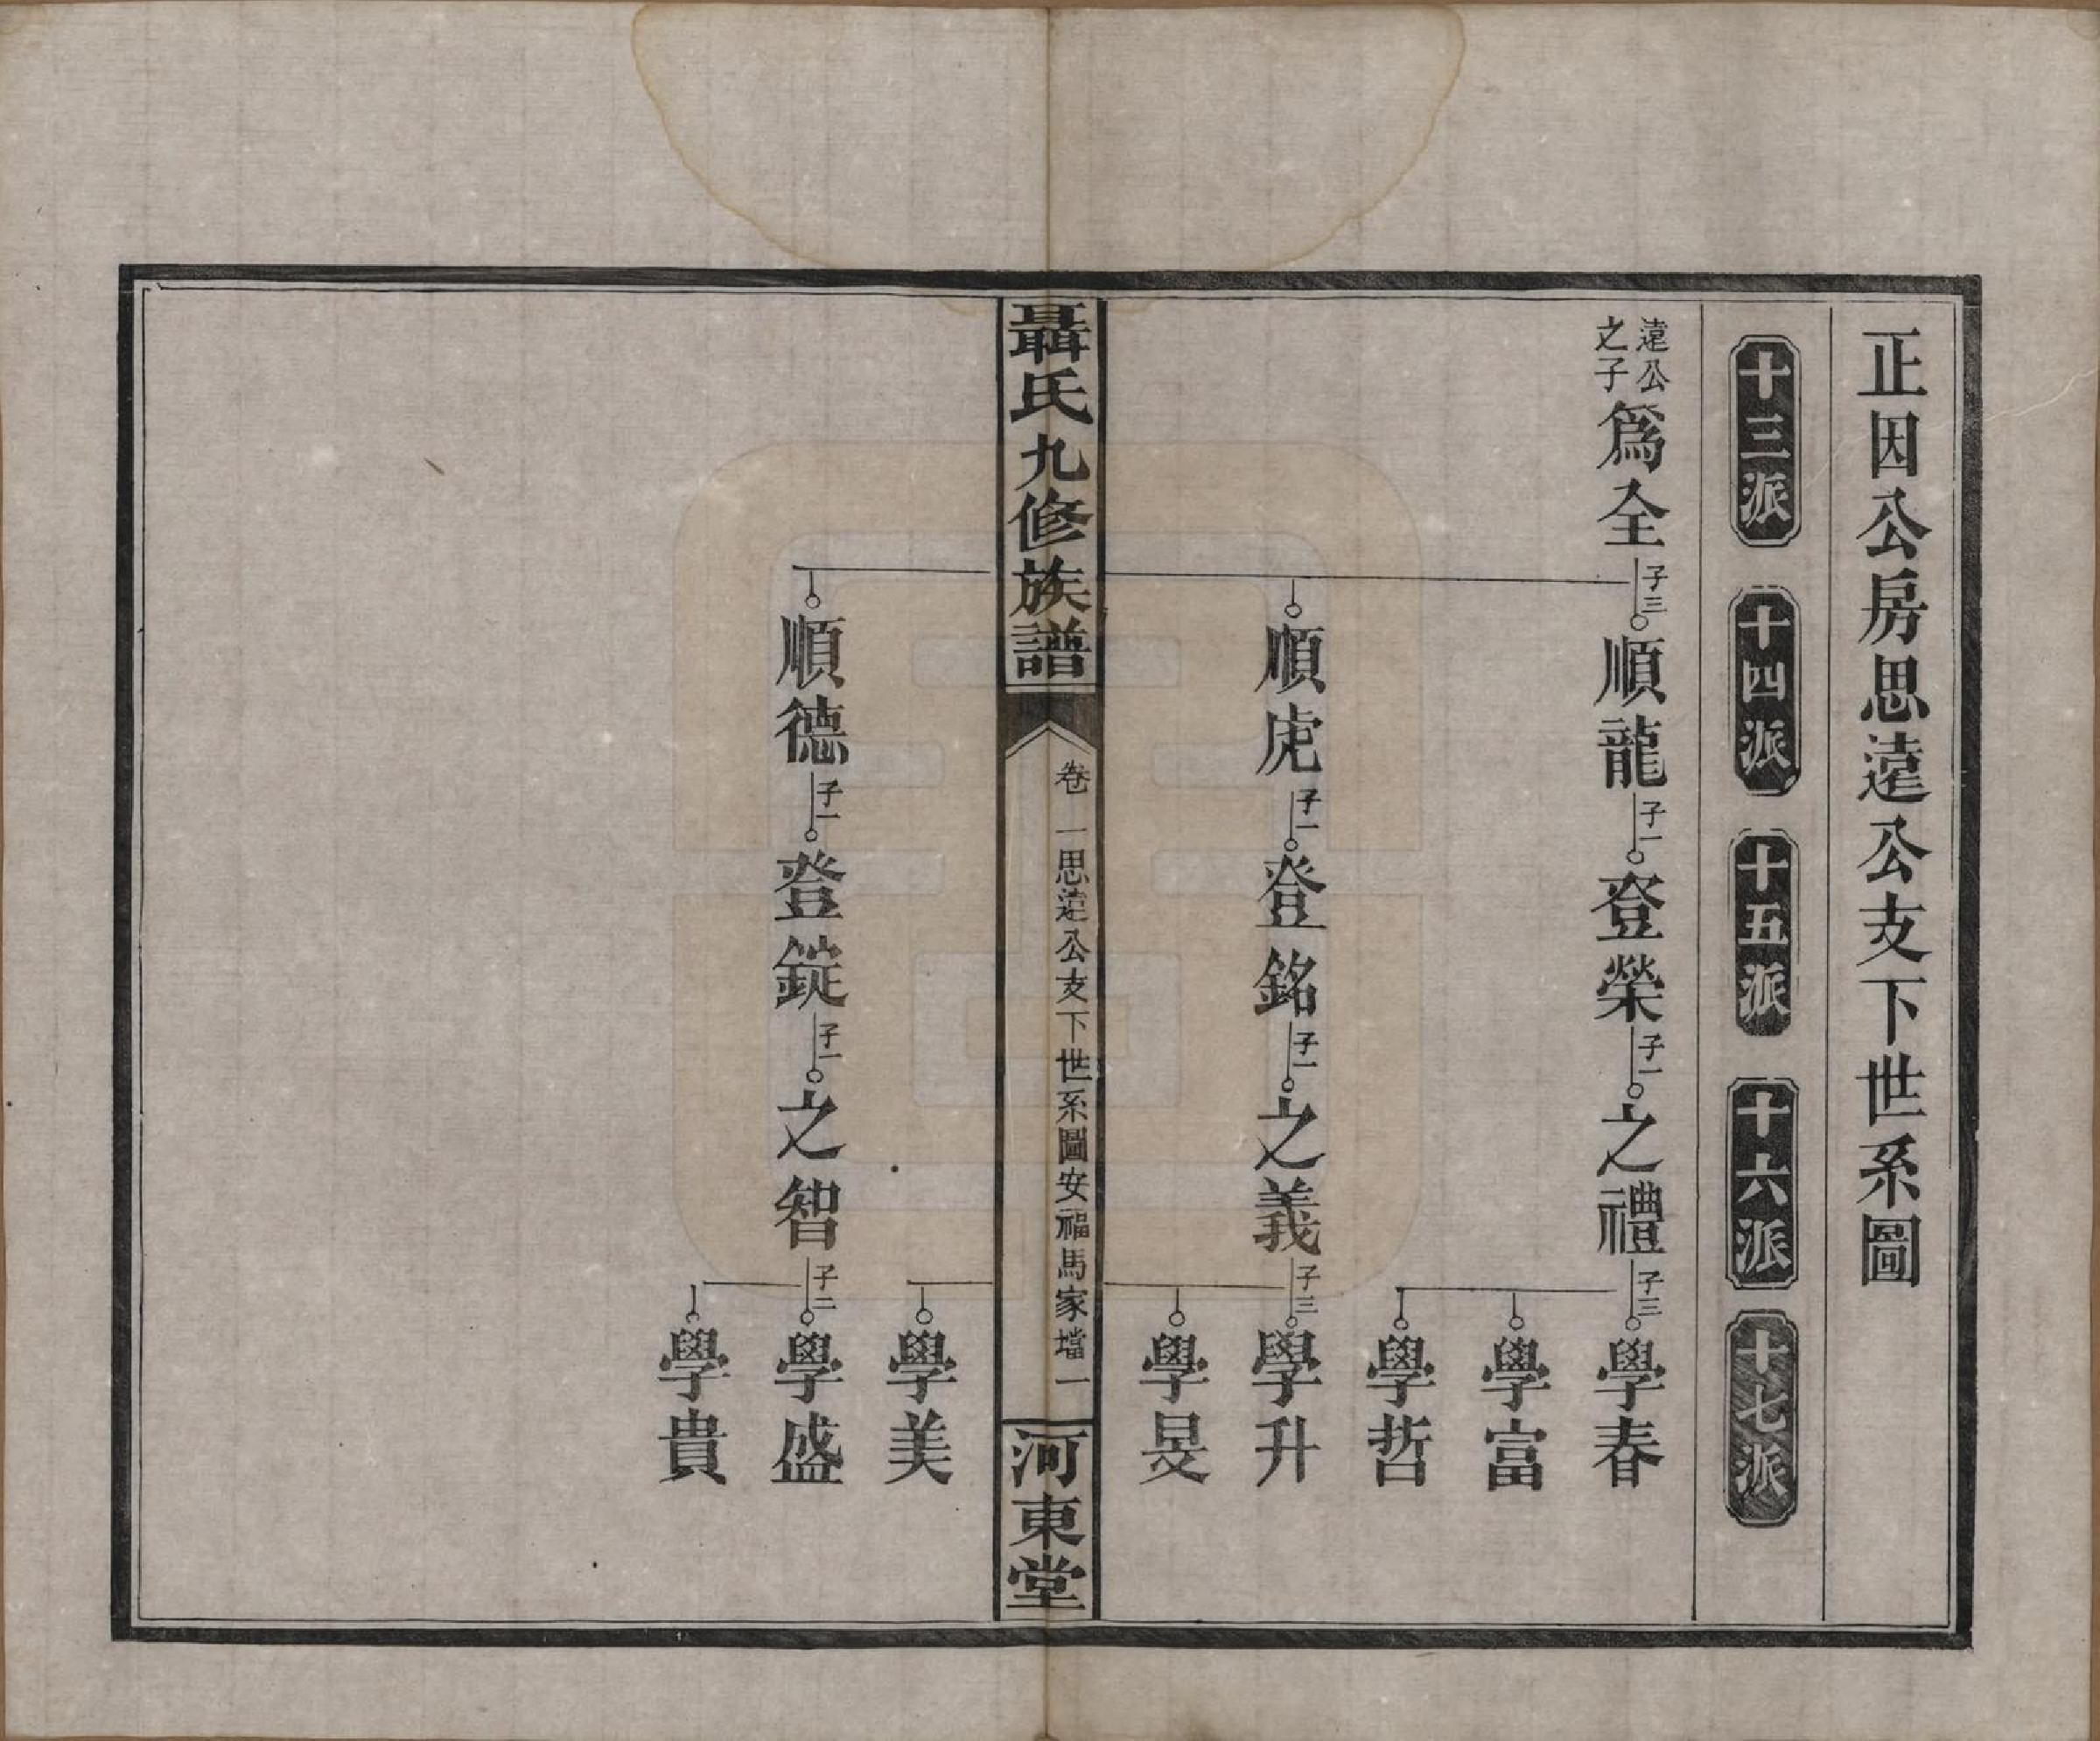 正因公房思遠公支下世系圖
十三派
十四派
十五派
十六派
十七派
遠公
之子
爲全
子三
順龍
子一
登榮
子一
之禮
子三
學春
學富
學哲
順虎
子一
登銘
子一
之義
子三
學升
學旻
聶氏九修族譜
卷一思遠公支下世系圖安福馬家壋一
河東堂
學美
順德
子一
登錠
子一
之智
子二
學盛
學貴